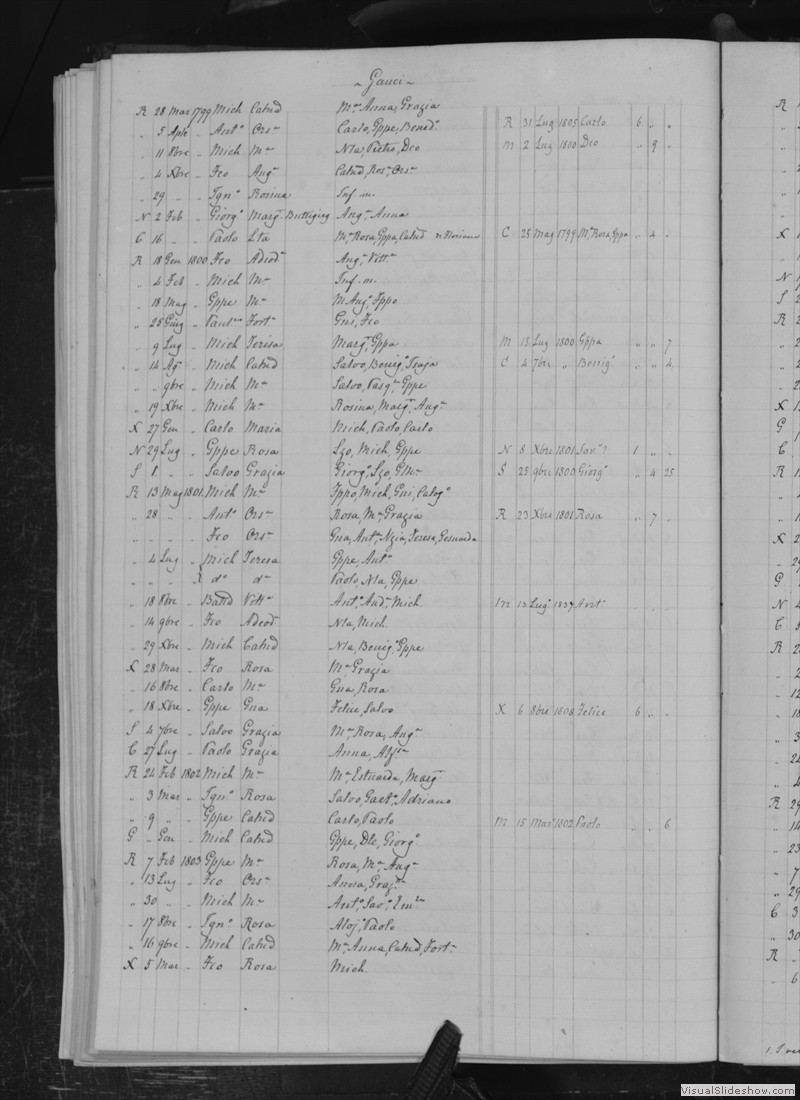 ~ Gauci ~
R 28 Mar 1799 Mich Catnd Mª Anna, Grazia
" 5 Aple " Antº Orsª Carlo, Gppe, Bendº R 31 Lug 1805 Carlo 6 " "
" 11 8bre " Mich Mª Nla, Pietro, Dco M 2 Lug 1800 Dco " 9 "
" 4 Xbre " Fco Angª Catnd, Rosª, Orsª
" 29 " " Ignº Rosina Inf. m.
N 2 Feb " Giorgº Margª Buttigieg Angª Anna
C 16 " " Paolo Lta Mª Rosa, Gppa, Catnd C 25 Mag 1799 Mª Rosa, Gppa " 4 "
R 18 Gen 1800 Fco Adeodª Angª Vittª
" 4 Feb " Mich Mª Inf. m.
" 18 Mag " Gppe Mª M Angº, Fppo
" 25 Giug " Fortª Gni, Fco
" 9 Lug " Mich Teresa Margª, Gppa M 15 Lug 1800 Gppa " " 7
" 14 Agº " Mich Catnd Salvo, Benigº C 4 7bre " Benigº " " 4
" " 9bre " Mich Mª Salvo, Pasqle, Gppe
" 19 Xbre " Mich Mª Rosina, Margª, Angª
X 27 Gen " Carlo Maria Mich, Paolo, Carlo
N 29 Lug " Gppe Rosa Szo, Mich, Gppe N 8 Xbre 1801 Savº? 1 " "
S 1 " " Salvo Grazia Giorgº, Szo, GMª S 25 9bre 1800 Giorgº " 4 25
R 13 Mag 1801 Mich Mª Fppo, Mich, Gni, Calogº
" 28 " " Antº Orsª Rosa, Mª Grazia R 23 Xbre 1801 Rosa " 7 "
" " " " Fco Orsª Gna, Antª, Nzia, Teresa, Gesualda
" 4 Lug " Mich Teresa Gppe, Antª
" " " " { dº dª Paolo, Nla, Gppe
" 18 8bre " Battd Vittª Antº, Andª, Mich. M 13 Lugº 1837 Antº
" 14 9bre " Fco Adeodª Nla, Mich
" 29 Xbre " Mich Catnd Nla, Benigº, Gppe
X 28 Mar " Fco Rosa Mª Grazia
" 16 8bre " Carlo Mª Gna, Rosa
" 18 Xbre " Gppe Gna Felice, Salvo X 6 8bre 1808 Felice 6 " "
S 4 7bre " Salvo Grazia Mª Rosa, Angª
C 27 Lug " Paolo Grazia Anna, Aljª
R 24 Feb 1802 Mich Mª Mª Estuarda, Margª
" 3 Mar " Ignº Rosa Salvo, Gaetº, Adriano
" 9 " " Gppe Catnd Carlo, Paolo M 15 Marº 1802 Paolo " " 6
G " Gen " Mich Catnd Gppe, Dlc, Giorgº
R 7 Feb 1803 Gppe Mª Rosa, Mª Angª
" 13 Lug " Fco Orsª Anna, Grazª
" 30 " " Mich Mª Antº, Savº, Emle
" 17 8bre " Ignº Rosa Alojº, Paolo
" 16 9bre " Mich Catnd Mª Anna, Catnd, Fortª
X 5 Mar " Fco Rosa Mich.
VisualSlideshow.com